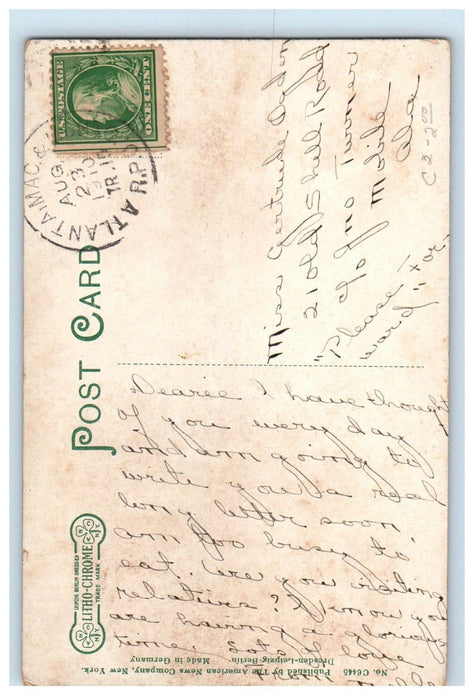 U.S. POSTAGE
ONE CENT
ATLANTA MAC. &
AUG
23
1910
TR.
R.P.O.
POST CARD
LITHO-CHROME
LEIPZIG BERLIN DRESDEN
TRADE MARK
Miss Gertrude
210 Old Shell Road
c/o Jno Turner
Mobile
Ala
"Please For-
ward"
C2-200
Dearee I have thought
of you every day
and am going to
write you a real
long letter soon.
am too busy to
eat. Are you visiting
relatives? I know you
are having a glorious
time. Lots of love
No. C6445 Published by The American News Company, New York.
Dresden-Leipzig-Berlin.
Made in Germany